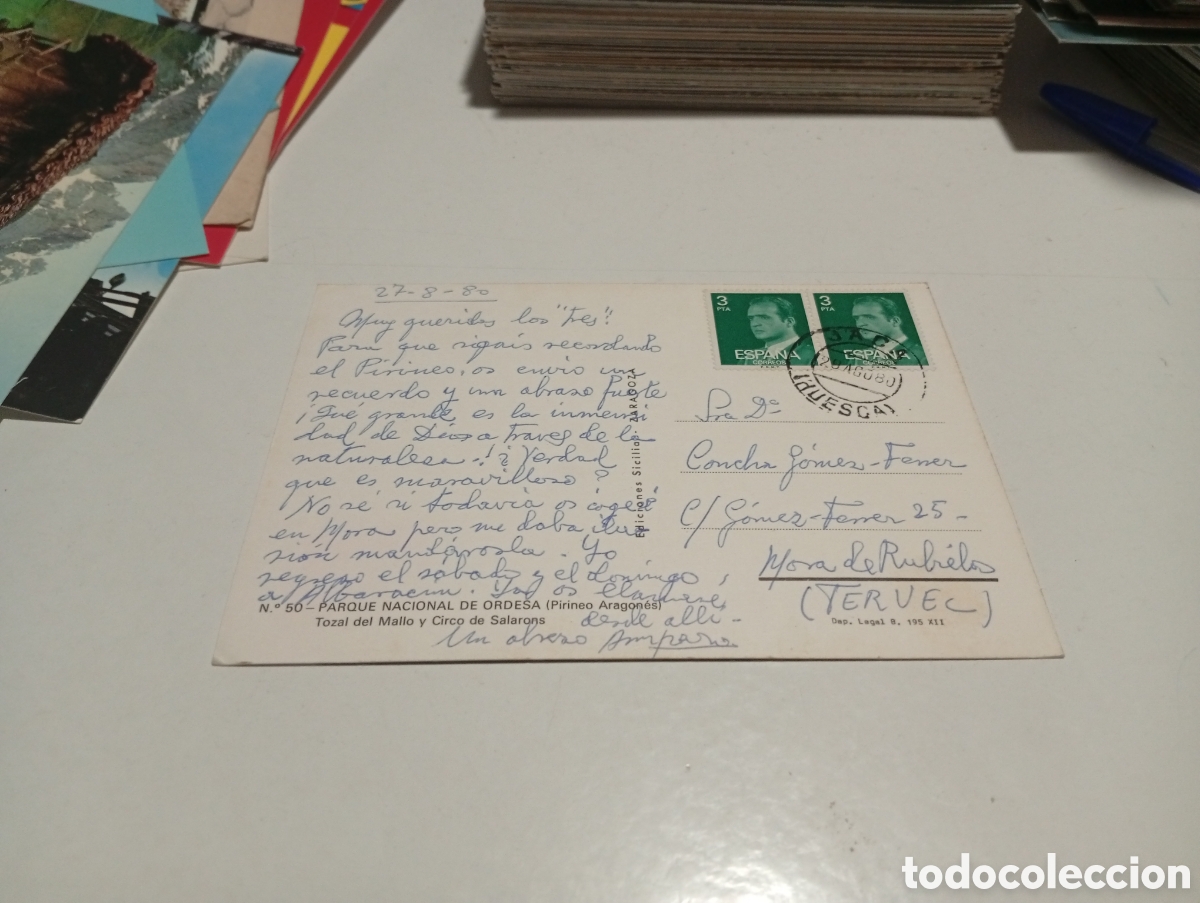 27-8-80
Muy queridos los "tres"!
Para que sigais recordando
el Pirineo, os envio un
recuerdo y un abrazo fuerte
¡Qué grande es la inmensi
dad de Dios a traves de la
naturaleza-! ¿Verdad
que es maravilloso?
No sé si todavía os cogeré
en Mora pero me daba ilu
sión mandárosla. Yo
regreso el sábado y el domingo,
a Albaracin. Ya os llamaré,
desde alli-
Un abrazo Amparo
N.º 50 - PARQUE NACIONAL DE ORDESA (Pirineo Aragonés)
Tozal del Mallo y Circo de Salarons
Ediciones Sicilia - ZARAGOZA
3
PTA
ESPAÑA
CORREOS
3
PTA
ESPAÑA
CORREOS
JACA
AGO 80
(HUESCA)
Sra Dª
Concha Gómez-Ferrer
C/ Gómez-Ferrer 25-
Mora de Rubiélos
(TERUEL)
Dep. Legal B. 195 XII
todocoleccion